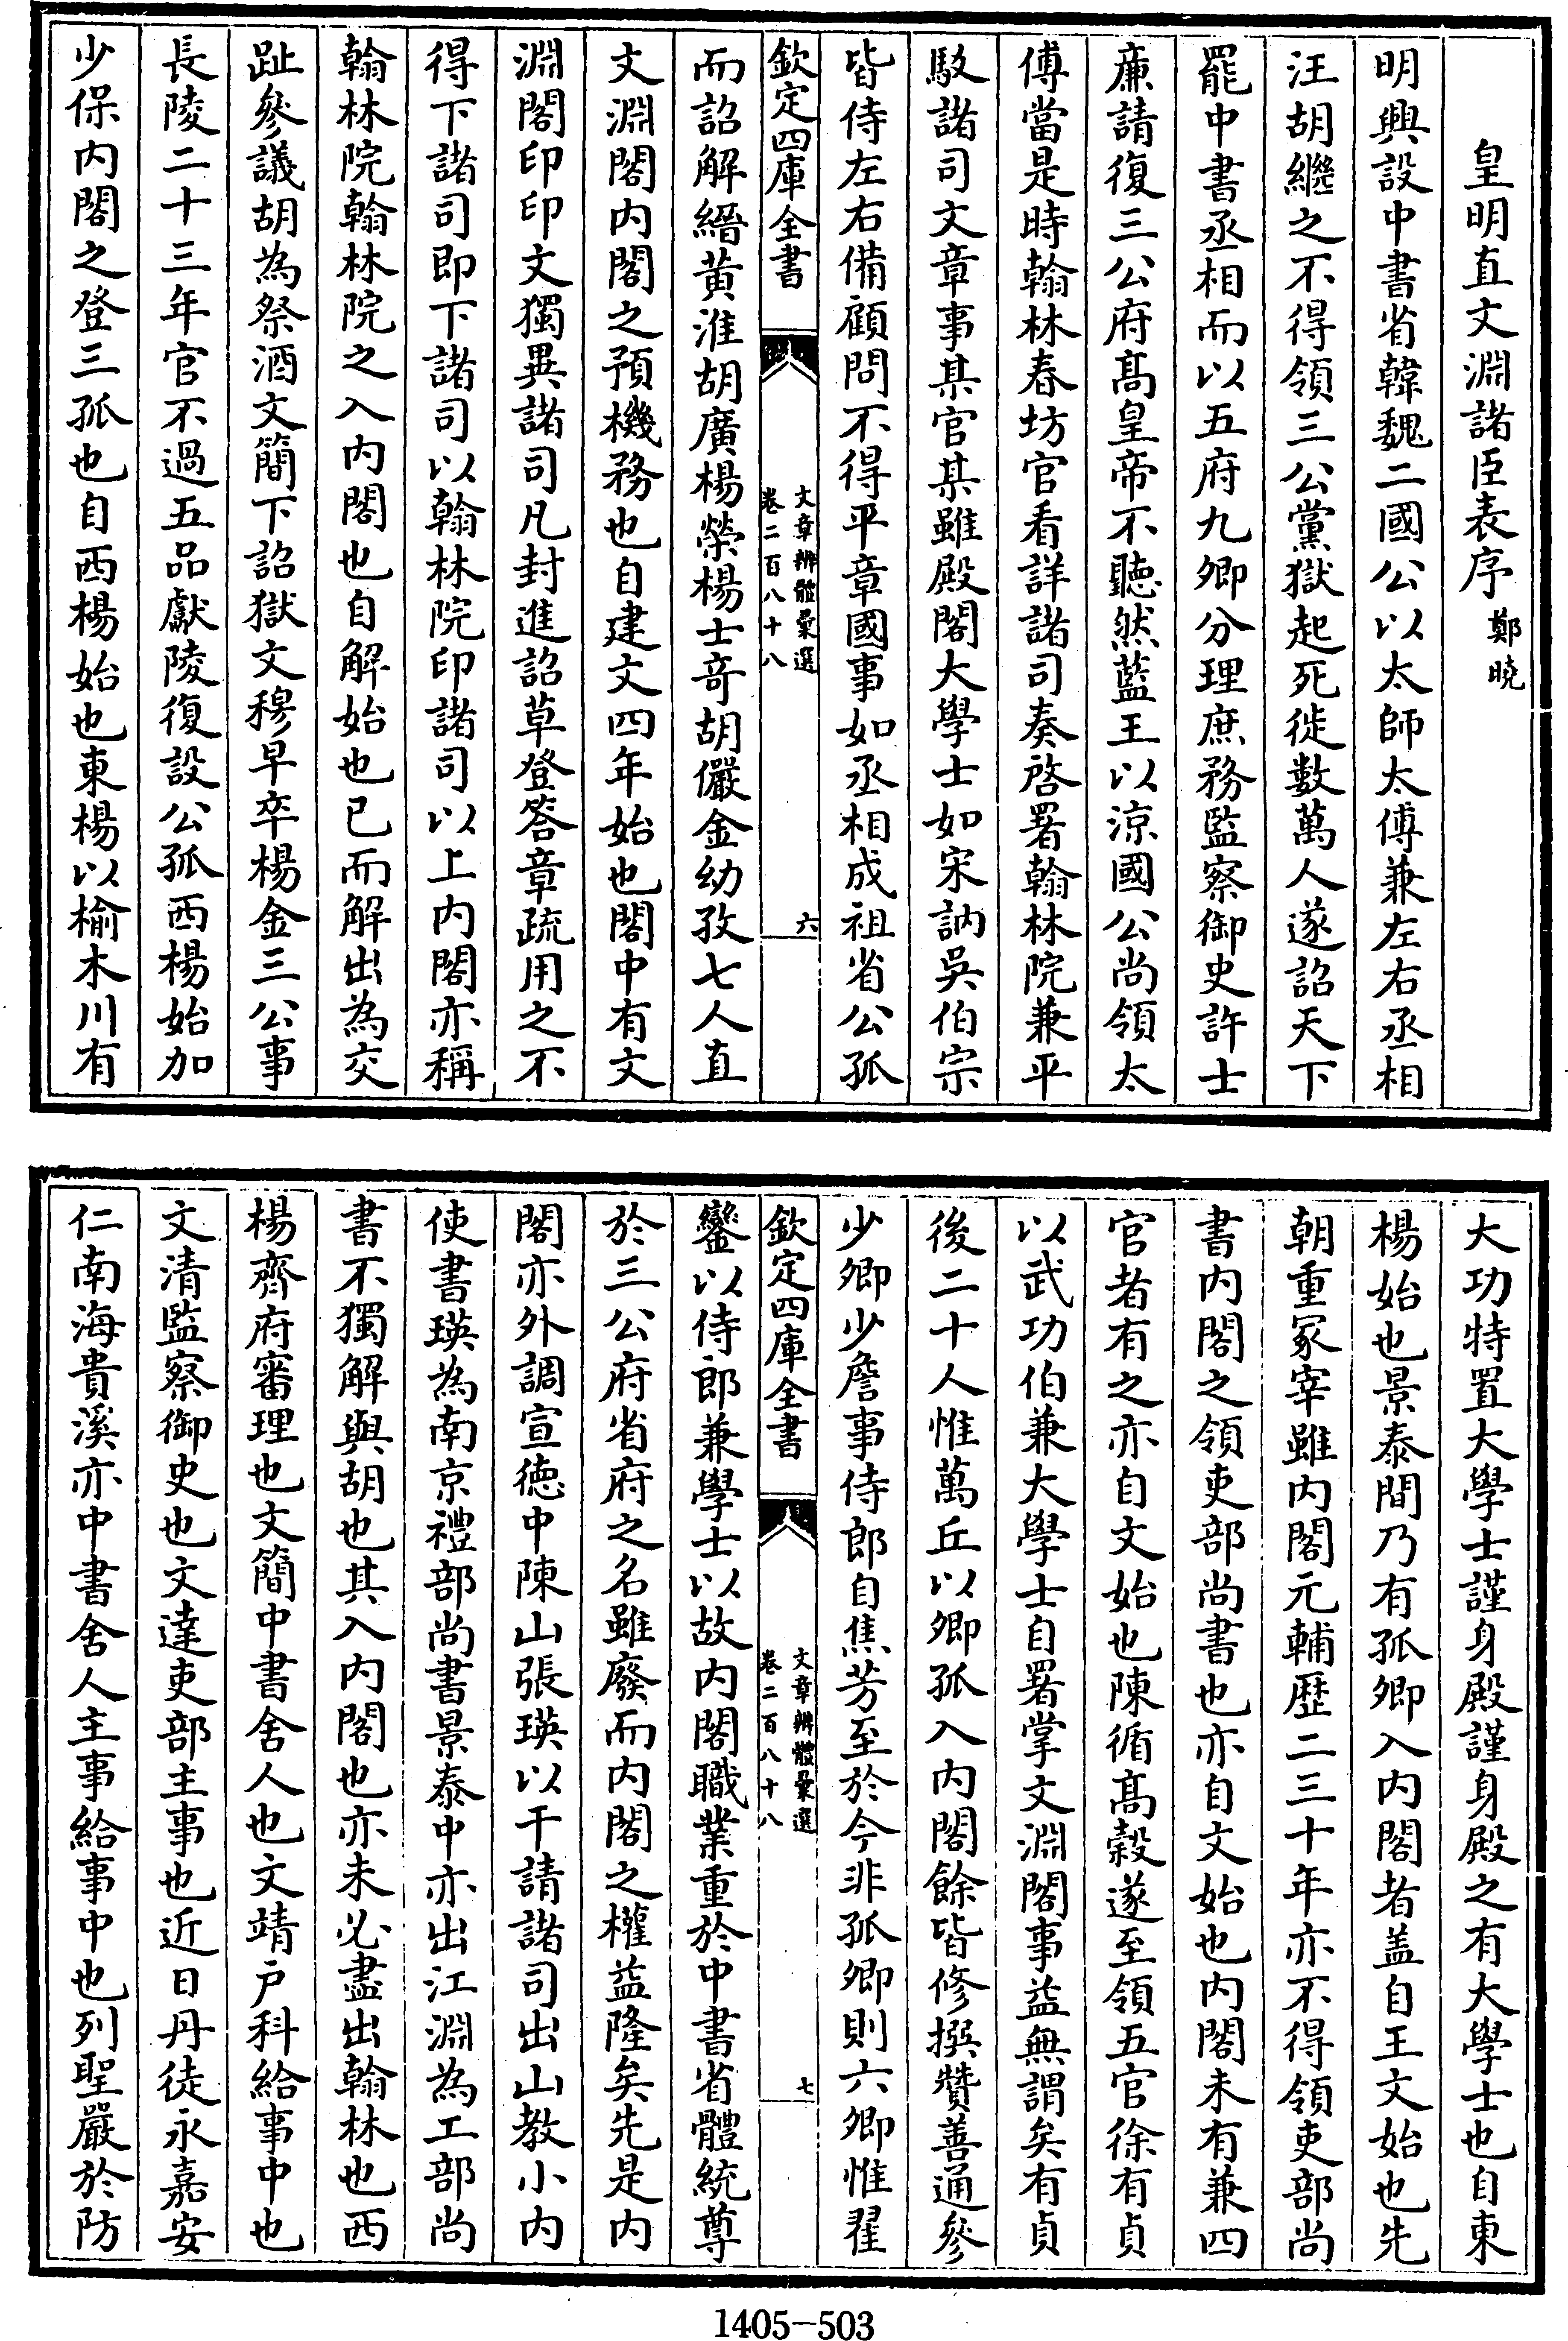 皇明直文淵諸臣表序鄭曉
明興設中書省韓魏二國公以太師太傅兼左右丞相
汪胡繼之不得領三公黨獄起死徙數萬人遂詔天下
罷中書丞相而以五府九卿分理庶務監察御史許士
亷請復三公府髙皇帝不聽然藍王以涼國公尚領太
傅當是時翰林春坊官看詳諸司奏啓署翰林院兼平
駁諸司文章事某官某雖殿閣大學士如宋訥吳伯宗
皆侍左右備顧問不得平章國事如丞相成祖省公孤
欽定四庫全書
文章辨體彙選
卷二百八十八
六
而詔解縉黃淮胡廣楊榮楊士竒胡儼金幼孜七人直
文淵閣内閣之預機務也自建文四年始也閣中有文
淵閣印印文獨異諸司凡封進詔草登答章疏用之不
得下諸司即下諸司以翰林院印諸司以上内閣亦稱
翰林院翰林院之入内閣也自解始也已而解出為交
趾參議胡為祭酒文簡下詔獄文穆早卒楊金三公事
長陵二十三年官不過五品獻陵復設公孤西楊始加
少保内閣之登三孤也自西楊始也東楊以榆木川有
大功特置大學士謹身殿謹身殿之有大學士也自東
楊始也景泰間乃有孤卿入内閣者盖自王文始也先
朝重冢宰雖内閣元輔歴二三十年亦不得領吏部尚
書内閣之領吏部尚書也亦自文始也内閣未有兼四
官者有之亦自文始也陳循髙穀遂至領五官徐有貞
以武功伯兼大學士自署掌文淵閣事益無謂矣有貞
後二十人惟萬丘以卿孤入内閣餘皆修撰贊善通參
少卿少詹事侍郎自焦芳至於今非孤卿則六卿惟翟
欽定四庫全書
文章辨體彙選
卷二百八十八
七
鑾以侍郎兼學士以故内閣職業重於中書省體統尊
於三公府省府之名雖廢而内閣之權益隆矣先是内
閣亦外調宣徳中陳山張瑛以干請諸司出山教小内
使書瑛為南京禮部尚書景泰中亦出江淵為工部尚
書不獨解與胡也其入内閣也亦未必盡出翰林也西
楊齊府審理也文簡中書舍人也文靖户科給事中也
文清監察御史也文達吏部主事也近日丹徒永嘉安
仁南海貴溪亦中書舍人主事給事中也列聖嚴於防
1405-503